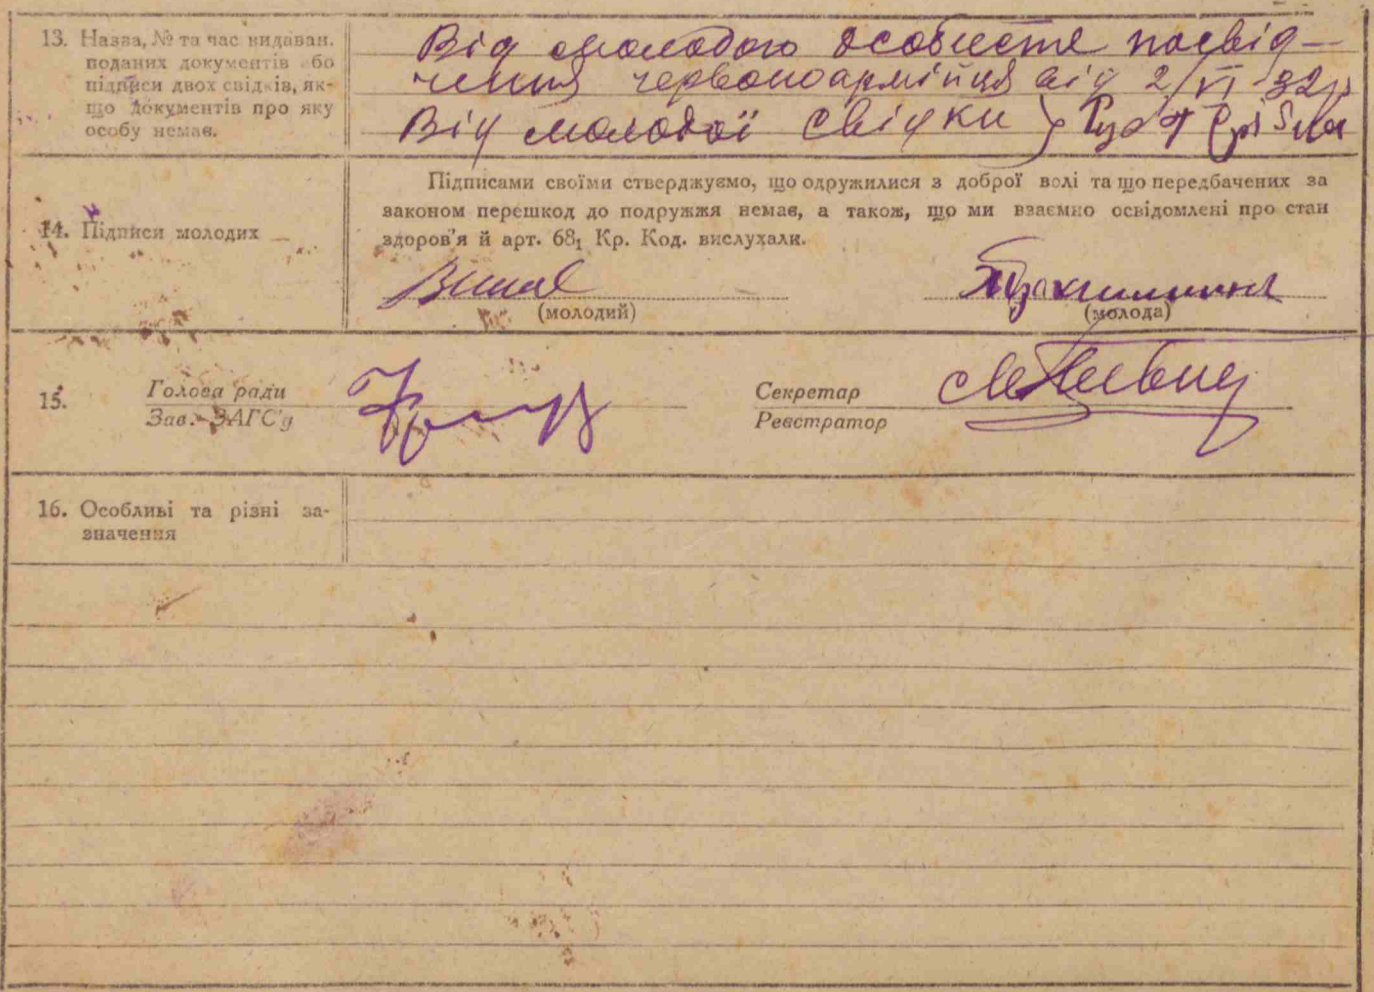 13. Назва, № та час видаван.
поданих документів або
підписи двох свідків, як-
що документів про яку
особу немає.
Від молодого особисте посвід-
чення червоноармійця від 2/VI 32р
Від молодої свідки }
14. Підписи молодих
Підписами своїми стверджуємо, що одружилися з доброї волі та що передбачених за
законом перешкод до подружжя немає, а також, що ми взаємно освідомлені про стан
здоров'я й арт. 68₁ Кр. Код. вислухали.
(молодий)
(молода)
15. Голова ради
Зав. ЗАГС'у
Секретар
Реєстратор
16. Особливі та різні за-
значення